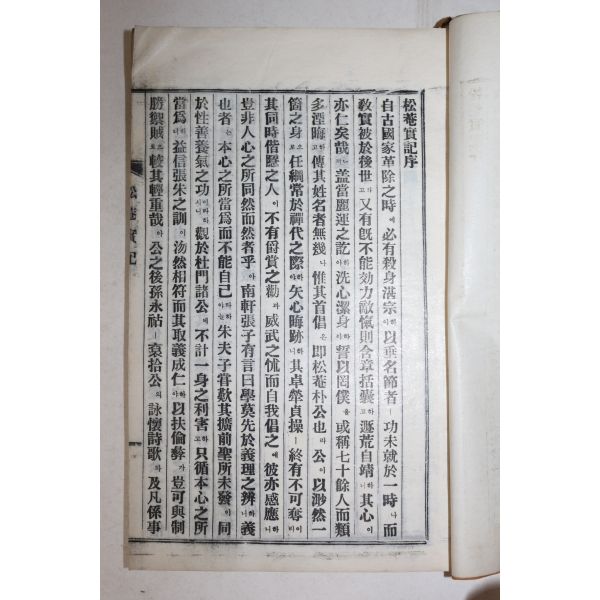 松菴實記序
自古國家革除之時에必有殺身湛宗하以垂名節者ㅣ功未就於一時나而
敎實被於後世고又有旣不能効力敵愾則含章括囊고遯荒自靖하니其心이
亦仁矣哉져盖當麗運之訖하야洗心潔身하야誓以罔僕을或稱七十餘人而類
多湮晦하고傳其姓名者無幾나惟其首倡은卽松菴朴公也라公이以渺然一
箇之身으로任綱常於禪代之際하야矢心晦跡하니其卓犖貞操ㅣ終有不可奪이니
其同時偕隱之人이不有爵賞之勸과威武之怵而自我倡之에彼亦感應하니
豈非人心之所同然而然者乎아南軒張子有言曰學莫先於義理之辨하니義
也者는本心之所當爲而不能自已라하야늘朱夫子嘗歎其擴前聖所未發이同
於性善養氣之功이라하시니觀於杜門諸公에不計一身之利害하고只循本心之所
當爲하니益信張朱之訓이沕然相符而其取義成仁하야以扶倫彝가豈可與制
勝禦賊으로較其輕重哉아公之後孫永祜ㅣ裒拾公의詠懷詩歌와及凡係事
松菴實記